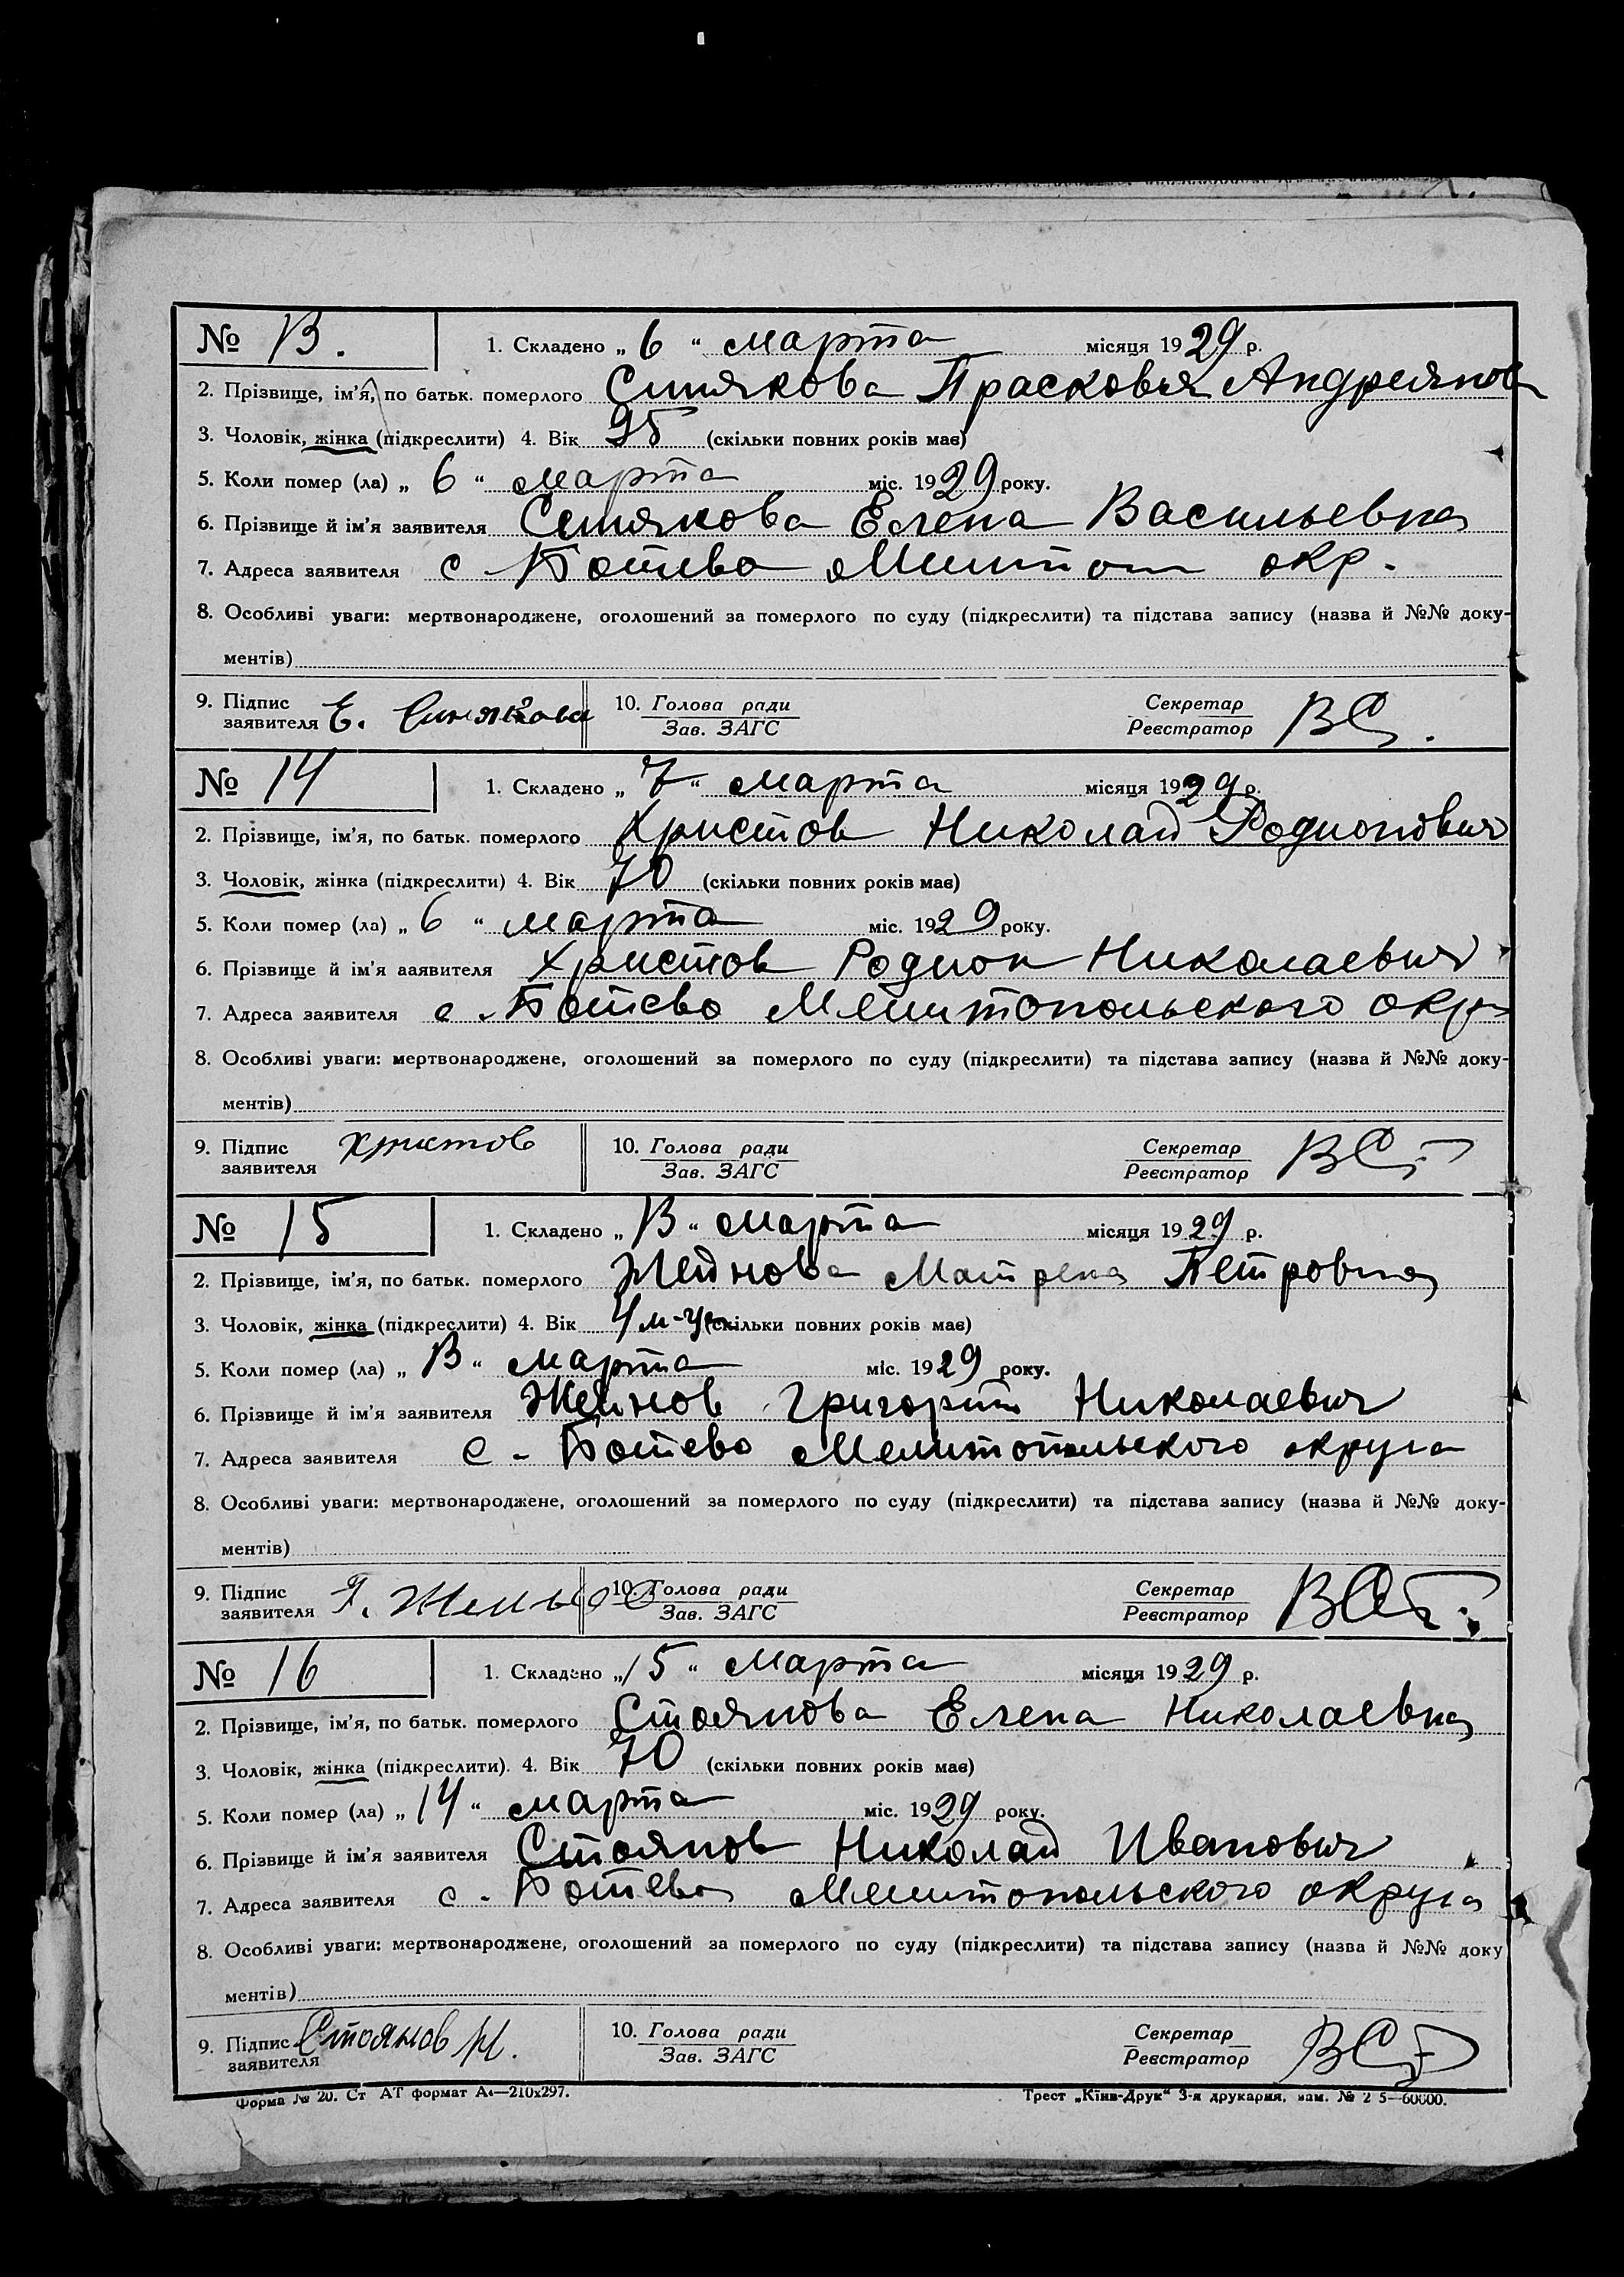 № 13. 1. Складено „ 6 “ марта місяця 1929 р.
2. Прізвище, ім'я, по батьк. померлого Синякова Прасковья Андреяновн
3. Чоловік, жінка (підкреслити) 4. Вік 95 (скільки повних років має)
5. Коли помер (ла) „ 6 “ марта міс. 1929 року.
6. Прізвище й ім'я заявителя Синякова Елена Васильевна
7. Адреса заявителя с Ботево Мелитоп окр.
8. Особливі уваги: мертвонароджене, оголошений за померлого по суду (підкреслити) та підстава запису (назва й №№ доку-
ментів)
9. Підпис заявителя Е. Синякова 10. Голова ради Зав. ЗАГС Секретар Реєстратор
№ 14 1. Складено „ 7 “ марта місяця 1929 р.
2. Прізвище, ім'я, по батьк. померлого Христов Николай Родионович
3. Чоловік, жінка (підкреслити) 4. Вік 70 (скільки повних років має)
5. Коли помер (ла) „ 6 “ марта міс. 1929 року.
6. Прізвище й ім'я ааявителя Христов Родион Николаевич
7. Адреса заявителя с. Ботево Мелитопольского окр
8. Особливі уваги: мертвонароджене, оголошений за померлого по суду (підкреслити) та підстава запису (назва й №№ доку-
ментів)
9. Підпис заявителя Христов 10. Голова ради Зав. ЗАГС Секретар Реєстратор
№ 15 1. Складено „ 13 “ марта місяця 1929 р.
2. Прізвище, ім'я, по батьк. померлого Жейнова Матрена Петровна
3. Чоловік, жінка (підкреслити) 4. Вік 4 м-ца (скільки повних років має)
5. Коли помер (ла) „ 13 “ марта міс. 1929 року.
6. Прізвище й ім'я заявителя Жейнов Григорий Николаевич
7. Адреса заявителя с. Ботево Мелитопольского округа
8. Особливі уваги: мертвонароджене, оголошений за померлого по суду (підкреслити) та підстава запису (назва й №№ доку-
ментів)
9. Підпис заявителя Г. 10. Голова ради Зав. ЗАГС Секретар Реєстратор
№ 16 1. Складено „ 15 “ марта місяця 1929 р.
2. Прізвище, ім'я, по батьк. померлого Стоянова Елена Николаевна
3. Чоловік, жінка (підкреслити). 4. Вік 70 (скільки повних років має)
5. Коли помер (ла) „ 14 “ марта міс. 1929 року.
6. Прізвище й ім'я заявителя Стоянов Николай Иванович
7. Адреса заявителя с. Ботево Мелитопольского округа
8. Особливі уваги: мертвонароджене, оголошений за померлого по суду (підкреслити) та підстава запису (назва й №№ доку
ментів)
9. Підпис заявителя Стоянов Н. 10. Голова ради Зав. ЗАГС Секретар Реєстратор
Форма № 20. Ст АТ формат А4—210х297. Трест „Київ-Друк“ 3-я друкарня, зам. № 2 5—60000.